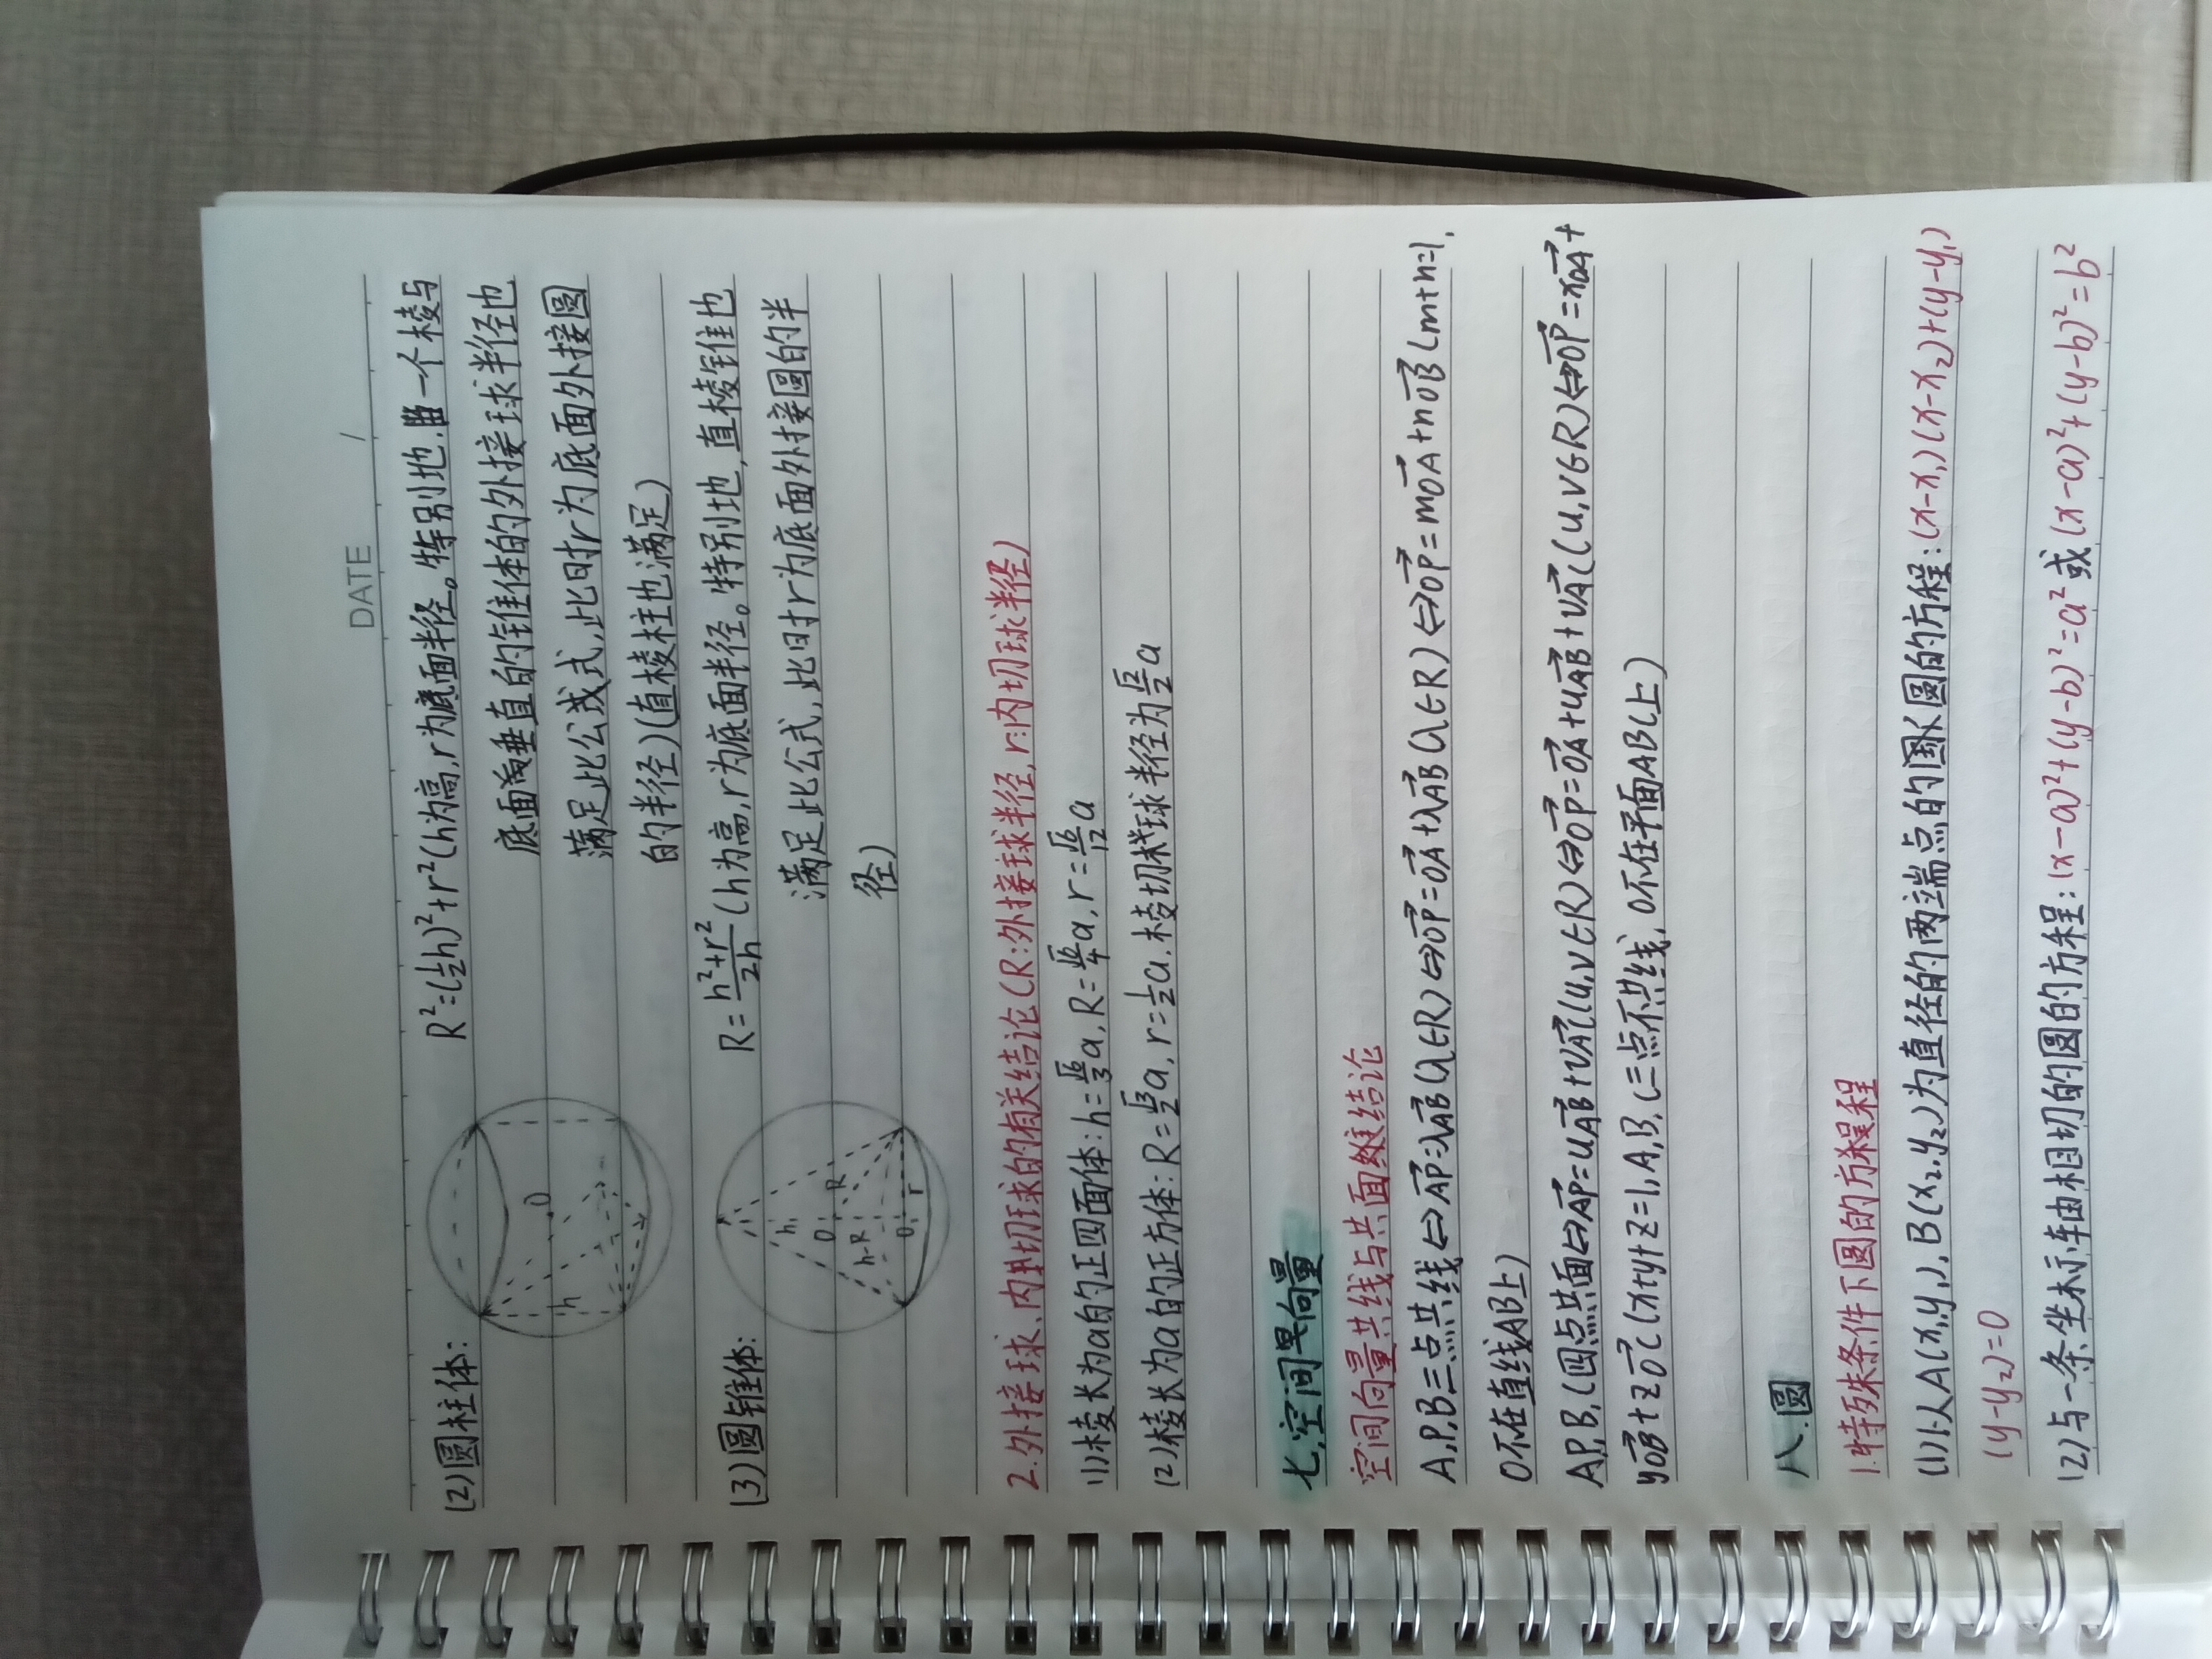 DATE /
(2)圆柱体: R²=(½h)²+r²(h为高,r为底面半径。特别地,一个棱与
底面垂直的锥体的外接球半径也
满足此公式,此时r为底面外接圆
的半径)(直棱柱也满足)
h O
(3)圆锥体: R=\frac{h²+r²}{2h}(h为高,r为底面半径。特别地,直棱锥也
满足此公式,此时r为底面外接圆的半
径)
h O R h-R O₁ r
2.外接球、内切球的有关结论(R:外接球半径,r:内切球半径)
(1)棱长为a的正四面体:h=\frac{√6}{3}a,R=\frac{√6}{4}a,r=\frac{√6}{12}a
(2)棱长为a的正方体:R=\frac{√3}{2}a,r=½a.棱切球半径为\frac{√2}{2}a
七.空间向量
空间向量共线与共面结论
A,P,B三点共线⇔\vec{AP}=λ\vec{AB}(λ∈R)⇔\vec{OP}=\vec{OA}+λ\vec{AB}(λ∈R)⇔\vec{OP}=m\vec{OA}+n\vec{OB}(m+n=1,
O不在直线AB上)
A,P,B,C四点共面⇔\vec{AP}=u\vec{AB}+v\vec{AC}(u,v∈R)⇔\vec{OP}=\vec{OA}+u\vec{AB}+v\vec{AC}(u,v∈R)⇔\vec{OP}=x\vec{OA}+
y\vec{OB}+z\vec{OC}(x+y+z=1,A,B,C三点不共线,O不在平面ABC上)
八.圆
1.特殊条件下圆的方程
(1)以A(x₁,y₁),B(x₂,y₂)为直径的两端点的圆的方程:(x-x₁)(x-x₂)+(y-y₁)
(y-y₂)=0
(2)与一条坐标轴相切的圆的方程:(x-a)²+(y-b)²=a²或(x-a)²+(y-b)²=b²